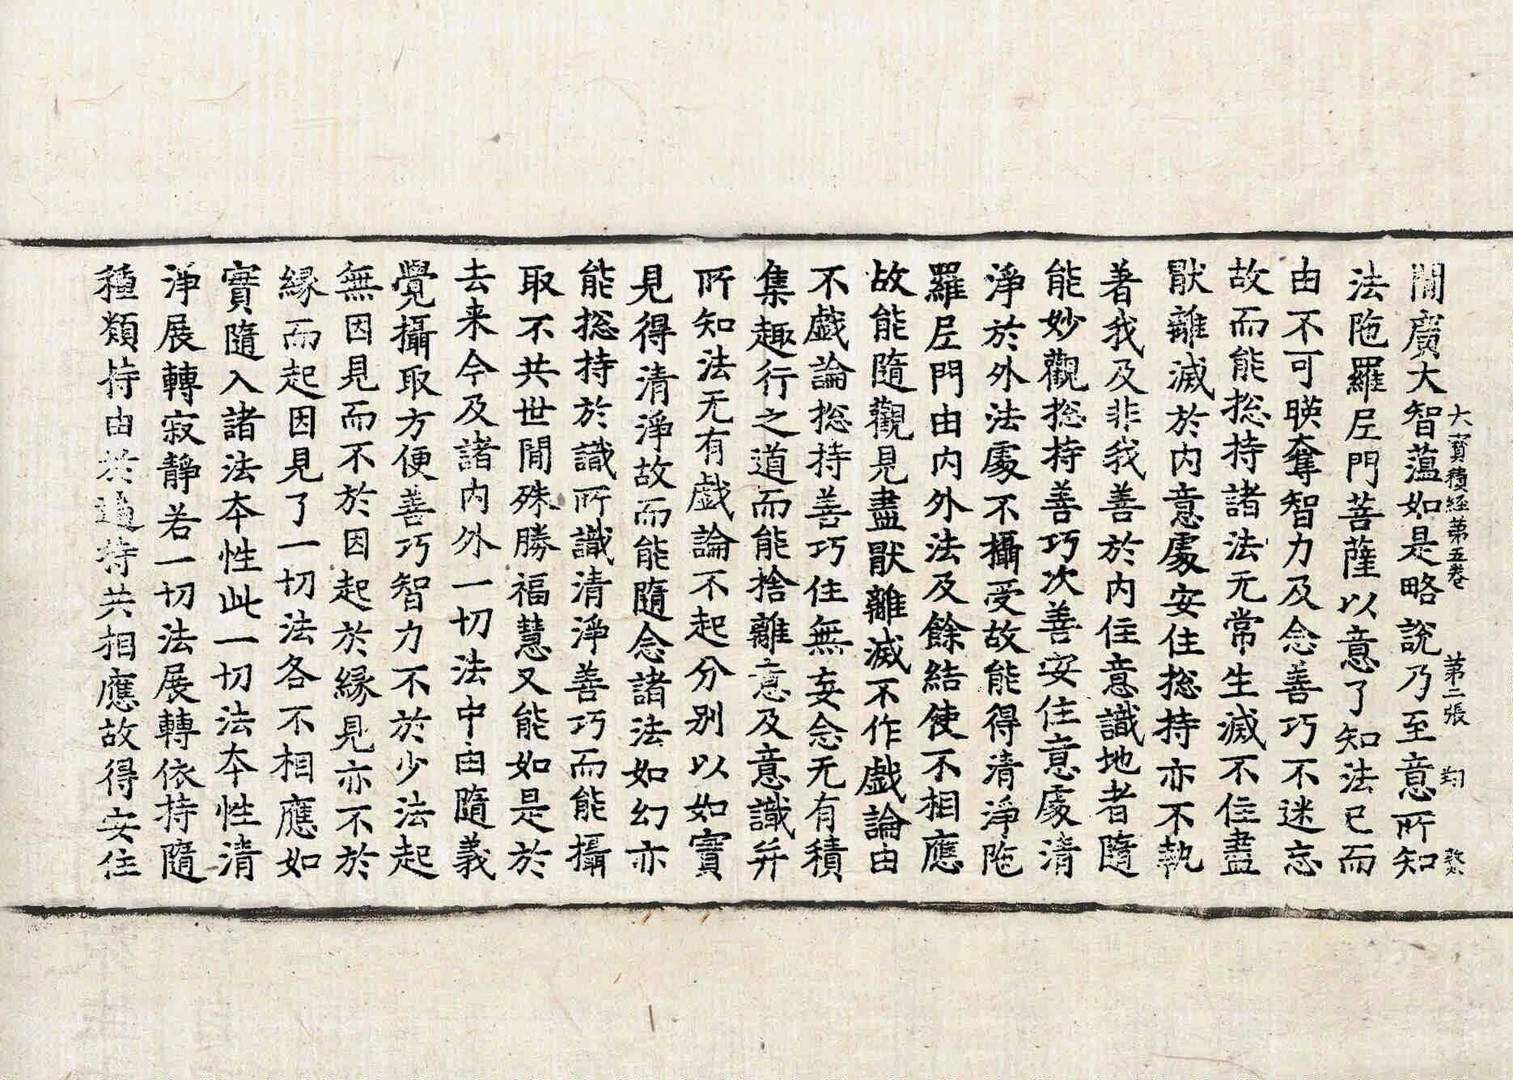 大寶積経第五卷 第二張 翔
閒廣大智蕰如是略說乃至意所知
法陁羅尼門菩薩以意了知法已而
由不可暎奪智力及念善巧不迷忘
故而能揔持諸法无常生滅不住盡
猒離滅於內意處安住揔持亦不執
著我及非我善於內住意識地者隨
能妙觀揔持善巧次善安住意處清
淨於外法處不攝受故能得清淨陁
羅尼門由內外法及餘結使不相應
故能隨觀見盡猒離滅不作戲論由
不戲論揔持善巧住無妄念无有積
集趣行之道而能捨離意及意識并
所知法无有戲論不起分別以如實
見得清淨故而能隨念諸法如幻亦
能揔持於識所識清淨善巧而能攝
取不共世閒殊勝福慧又能如是於
去来今及諸內外一切法中由隨義
覺攝取方便善巧智力不於少法起
無因見而不於因起於緣見亦不於
緣而起因見了一切法各不相應如
實隨入諸法本性此一切法本性清
淨展轉寂靜若一切法展轉依持隨
種類持由於遍持共相應故得安住